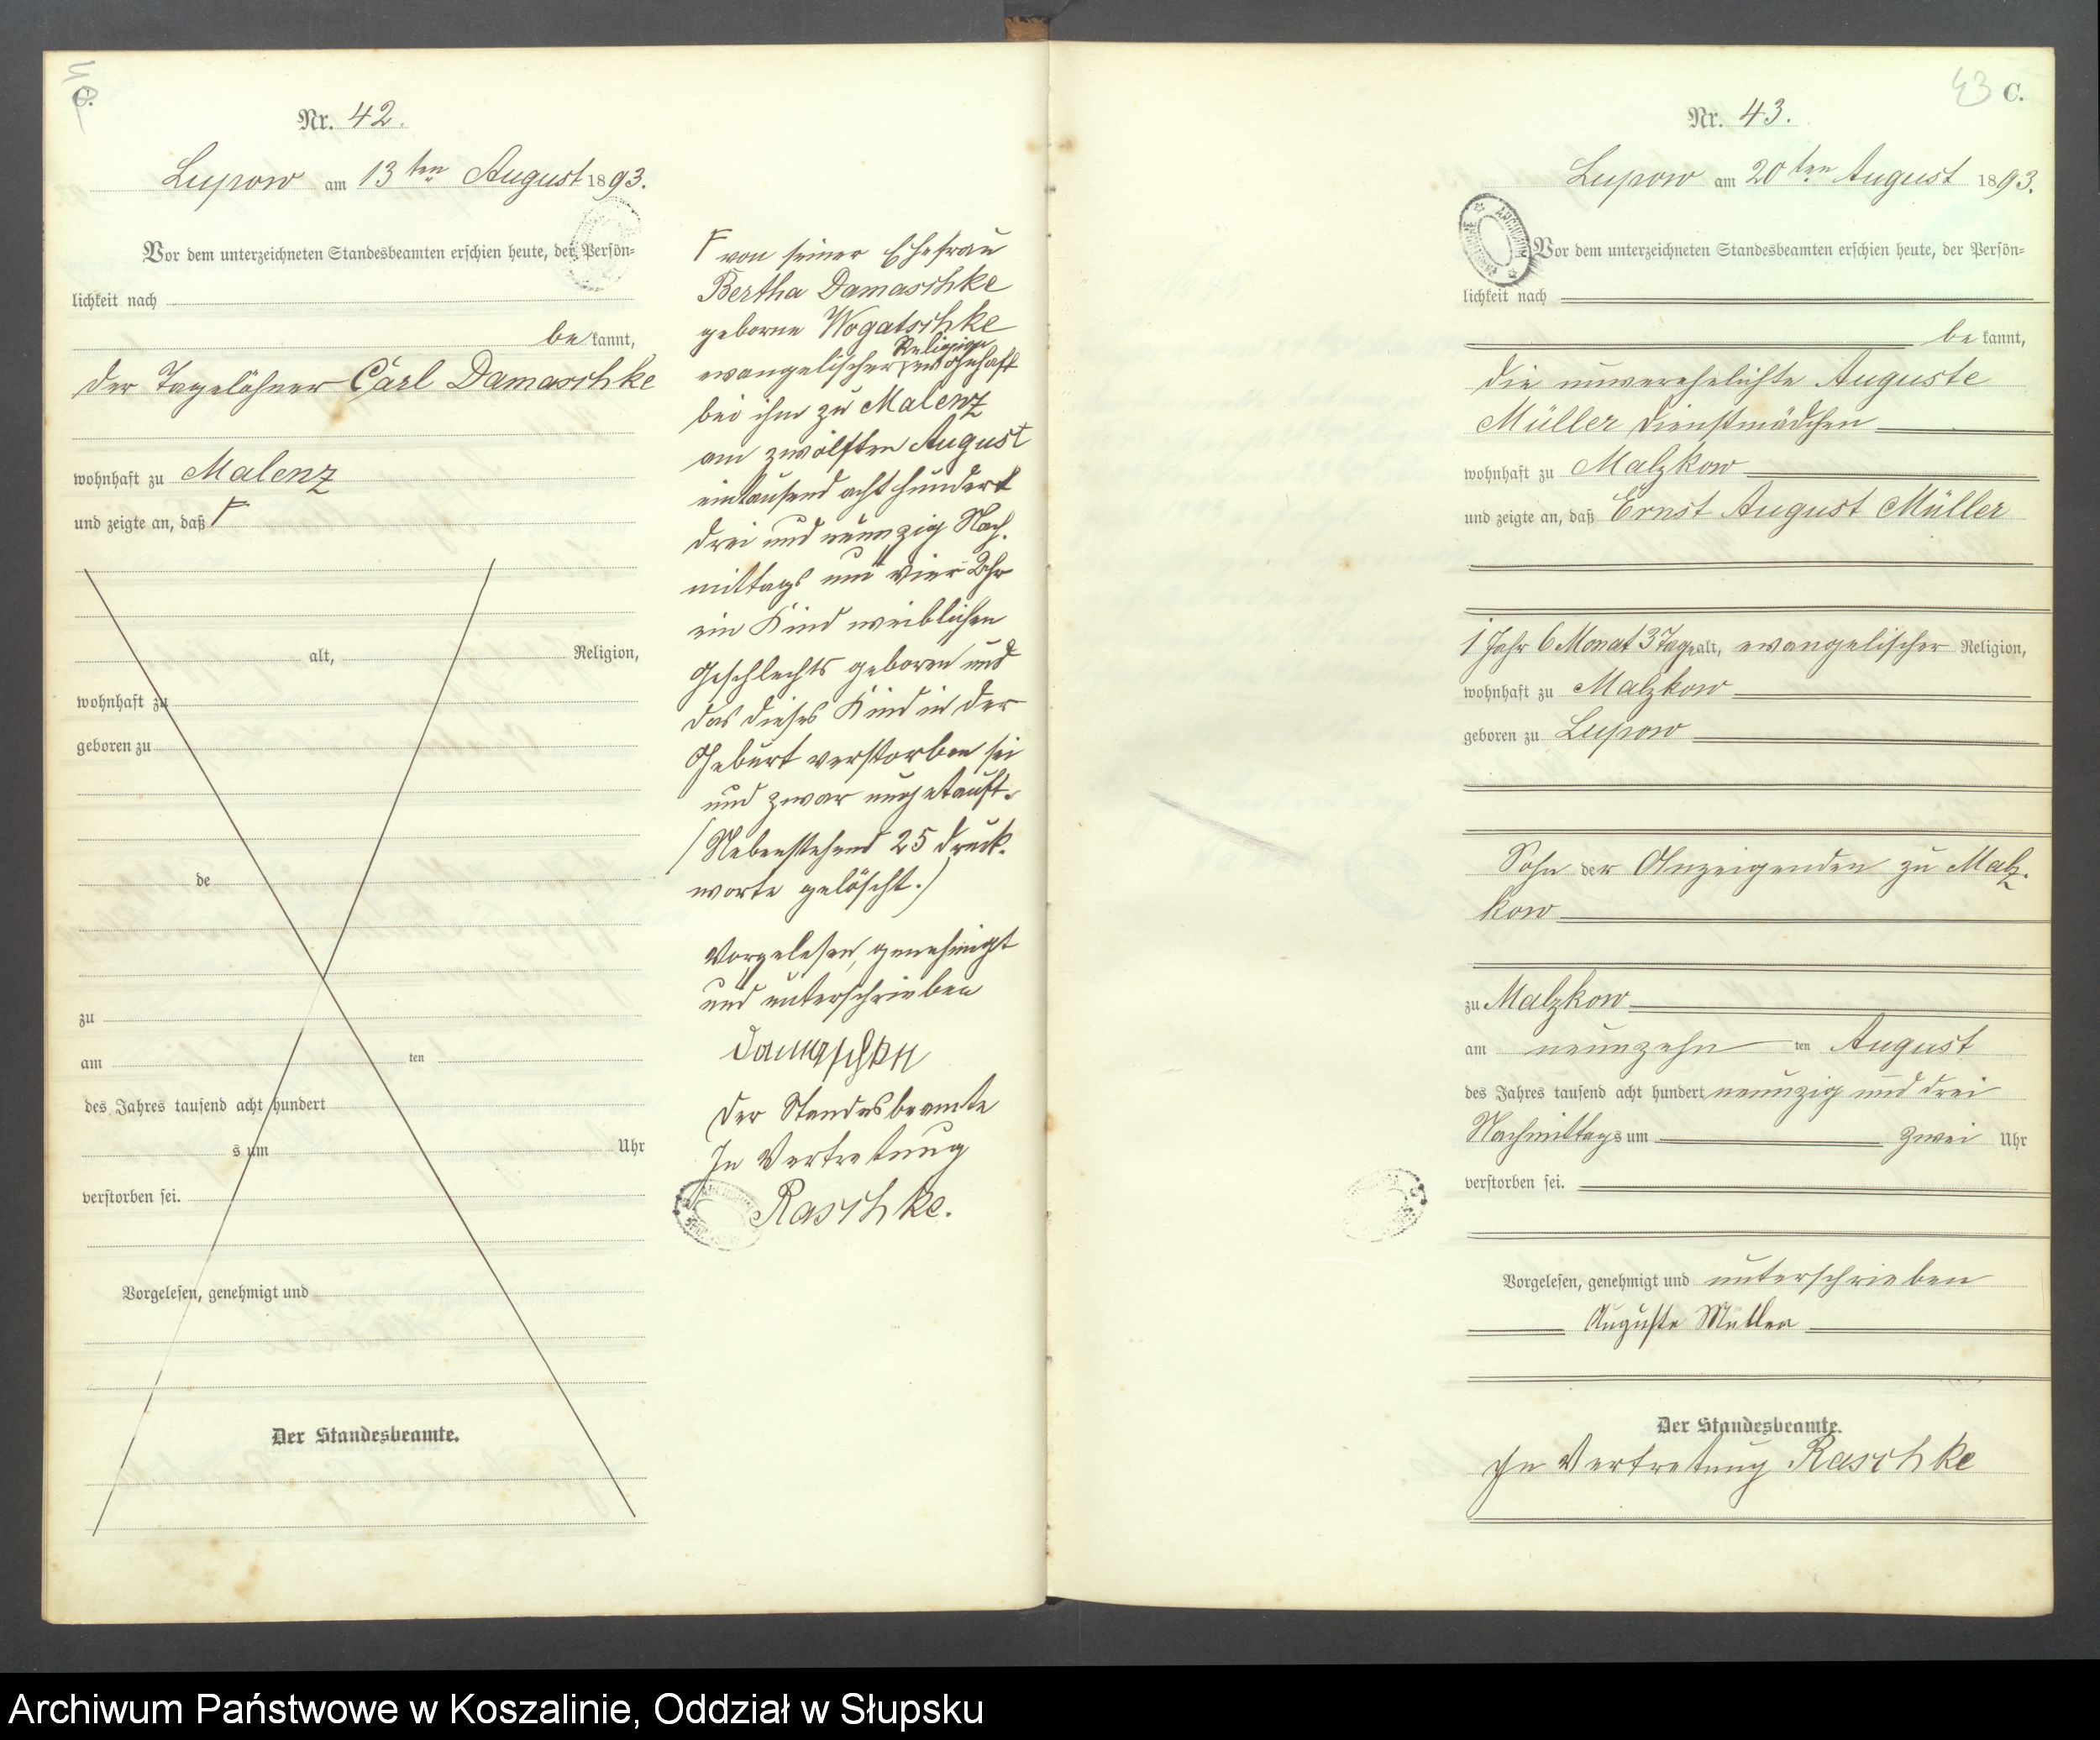 C.
Nr. 42.
Lupow am 13ten August 1893.
Vor dem unterzeichneten Standesbeamten erschien heute, der Persön-
lichkeit nach
be kannt,
der Tagelöhner Carl Damaschke
wohnhaft zu Malenz
und zeigte an, daß
alt, Religion,
wohnhaft zu
geboren zu
de
zu
am ten
des Jahres tausend acht hundert
s um Uhr
verstorben sei.
Vorgelesen, genehmigt und
Der Standesbeamte.
von seiner Ehefrau
Bertha Damaschke
geborne Wogatschke
evangelischer Religion wohnhaft
bei ihm zu Malenz
am zwölften August
eintausend acht hundert
drei und neunzig Nach-
mittags um vier Uhr
ein Kind weiblichen
Geschlechts geboren und
das dieses Kind in der
Geburt verstorben sei
und zwar ungetauft.
(Nebenstehend 25 Druck-
worte gelöscht.)
Vorgelesen, genehmigt
und unterschrieben
Damaschke
Der Standesbeamte
In Vertretung
Raschke.
43 C.
Nr. 43.
Lupow am 20ten August 1893.
Vor dem unterzeichneten Standesbeamten erschien heute, der Persön-
lichkeit nach
be kannt,
die unverehelichte Auguste
Müller Dienstmädchen
wohnhaft zu Malzkow
und zeigte an, daß Ernst August Müller
1 Jahr 6 Monat 3 Tage alt, evangelischer Religion,
wohnhaft zu Malzkow
geboren zu Lupow
Sohn der Anzeigenden zu Malz-
kow
zu Malzkow
am neunzehn ten August
des Jahres tausend acht hundert neunzig und drei
Nachmittags um zwei Uhr
verstorben sei.
Vorgelesen, genehmigt und unterschrieben
Auguste Müller
Der Standesbeamte.
In Vertretung Raschke
Archiwum Państwowe w Koszalinie, Oddział w Słupsku